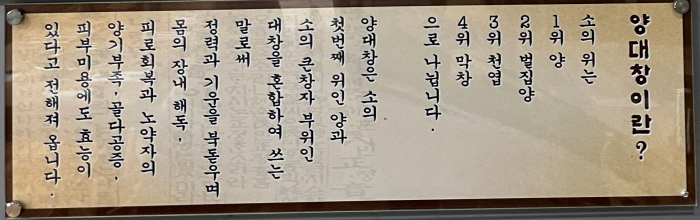 양대창이란?
소의 위는
1위 양
2위 벌집양
3위 천엽
4위 막창
으로 나뉩니다.
양대창은 소의
첫번째 위인 양과
소의 큰창자 부위인
대창을 혼합하여 쓰는
말로써
정력과 기운을 북돋우며
몸의 장내 해독,
피로회복과 노약자의
양기부족, 골다공증,
피부미용에도 효능이
있다고 전해져 옵니다.